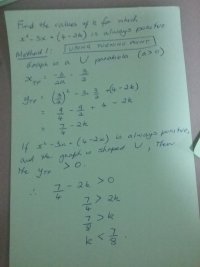 Find the values of k for which
x² - 3x + (4 - 2k) is always positive
Method 1: USING TURNING POINT
Graph is a U parabola (a > 0)
x_TP = -b/2a = 3/2
y_TP = (3/2)² - 3·3/2 + 4 - 2k
= 9/4 - 9/2 + 4 - 2k
= 7/4 - 2k
If x² - 3x + (4 - 2k) is always positive,
and the graph is shaped U, then
the y_TP > 0.
∴ 7/4 - 2k > 0
7/4 > 2k
7/8 > k
k < 7/8.